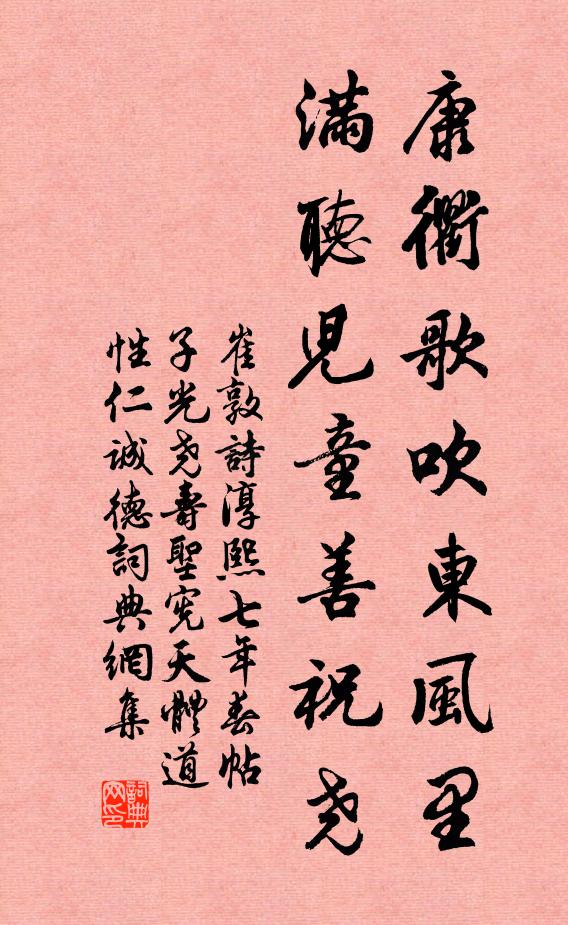 康衢歌吹東風里
滿聽兒童善祝尧
崔敦詩淳熙七年春帖
子光尧壽聖宪天體道
性仁誠德詞典網集
詞典
网印